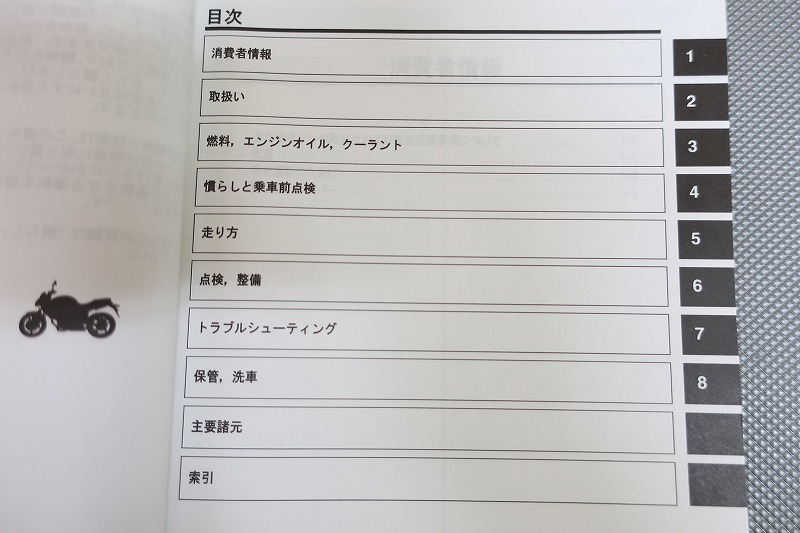 目次
消費者情報
1
取扱い
2
燃料，エンジンオイル，クーラント
3
慣らしと乗車前点検
4
走り方
5
点検，整備
6
トラブルシューティング
7
保管，洗車
8
主要諸元
索引